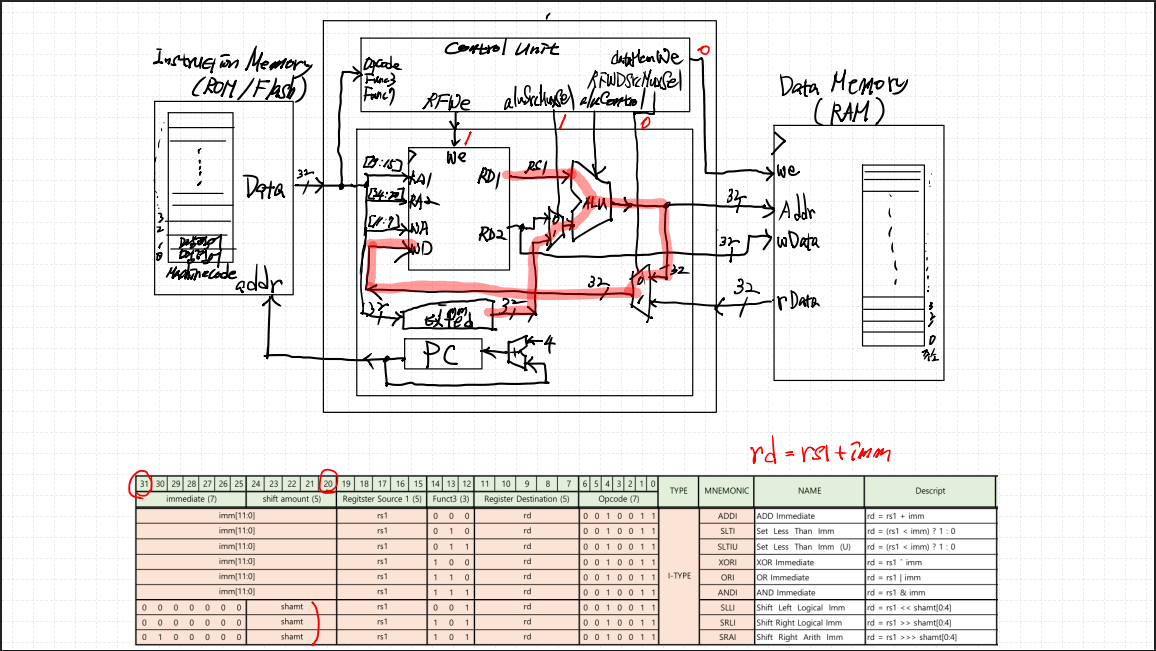 Control Unit
Instruction Memory
(ROM/Flash)
OPcode
Func3
Func7
dataMemWe
0
RFWDSrcMuxSel
RFWe
aluSrcMuxSel
aluControl
1
1
0
Data Memory
(RAM)
We
[19:15]
RA1
RD1
RS1
32
Data
[24:20]
RA2
ALU
we
32
Addr
[11:7]
WA
RD2
0
1
32
wData
WD
32
0
1
32
32
rData
3
2
1
0
MachineCode
addr
32
imm
extend
32
PC
+
4
3
2
1
0
rd = rs1 + imm
31 30 29 28 27 26 25 24 23 22 21 20 19 18 17 16 15 14 13 12 11 10 9 8 7 6 5 4 3 2 1 0 TYPE MNEMONIC NAME Descript
immediate (7) shift amount (5) Regitster Source 1 (5) Funct3 (3) Register Destination (5) Opcode (7)
imm[11:0] rs1 0 0 0 rd 0 0 1 0 0 1 1 ADDI ADD Immediate rd = rs1 + imm
imm[11:0] rs1 0 1 0 rd 0 0 1 0 0 1 1 SLTI Set Less Than Imm rd = (rs1 < imm) ? 1 : 0
imm[11:0] rs1 0 1 1 rd 0 0 1 0 0 1 1 SLTIU Set Less Than Imm (U) rd = (rs1 < imm) ? 1 : 0
imm[11:0] rs1 1 0 0 rd 0 0 1 0 0 1 1 XORI XOR Immediate rd = rs1 ˆ imm
imm[11:0] rs1 1 1 0 rd 0 0 1 0 0 1 1 I-TYPE ORI OR Immediate rd = rs1 | imm
imm[11:0] rs1 1 1 1 rd 0 0 1 0 0 1 1 ANDI AND Immediate rd = rs1 & imm
0 0 0 0 0 0 0 shamt rs1 0 0 1 rd 0 0 1 0 0 1 1 SLLI Shift Left Logical Imm rd = rs1 << shamt[0:4]
0 0 0 0 0 0 0 shamt rs1 1 0 1 rd 0 0 1 0 0 1 1 SRLI Shift Right Logical Imm rd = rs1 >> shamt[0:4]
0 1 0 0 0 0 0 shamt rs1 1 0 1 rd 0 0 1 0 0 1 1 SRAI Shift Right Arith Imm rd = rs1 >>> shamt[0:4]